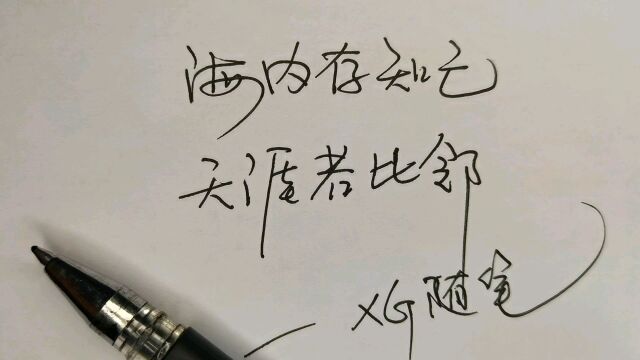 海内存知己
天涯若比邻
—XG随笔